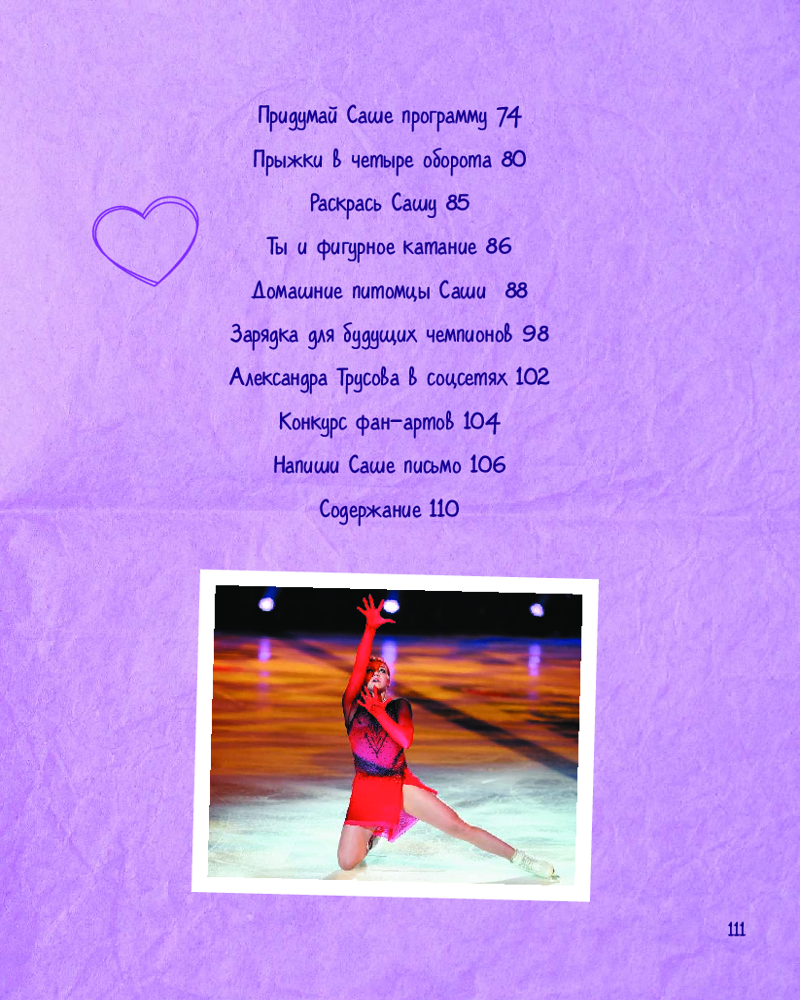 Придумай Саше программу 74
Прыжки в четыре оборота 80
Раскрась Сашу 85
Ты и фигурное катание 86
Домашние питомцы Саши 88
Зарядка для будущих чемпионов 98
Александра Трусова в соцсетях 102
Конкурс фан-артов 104
Напиши Саше письмо 106
Содержание 110
111